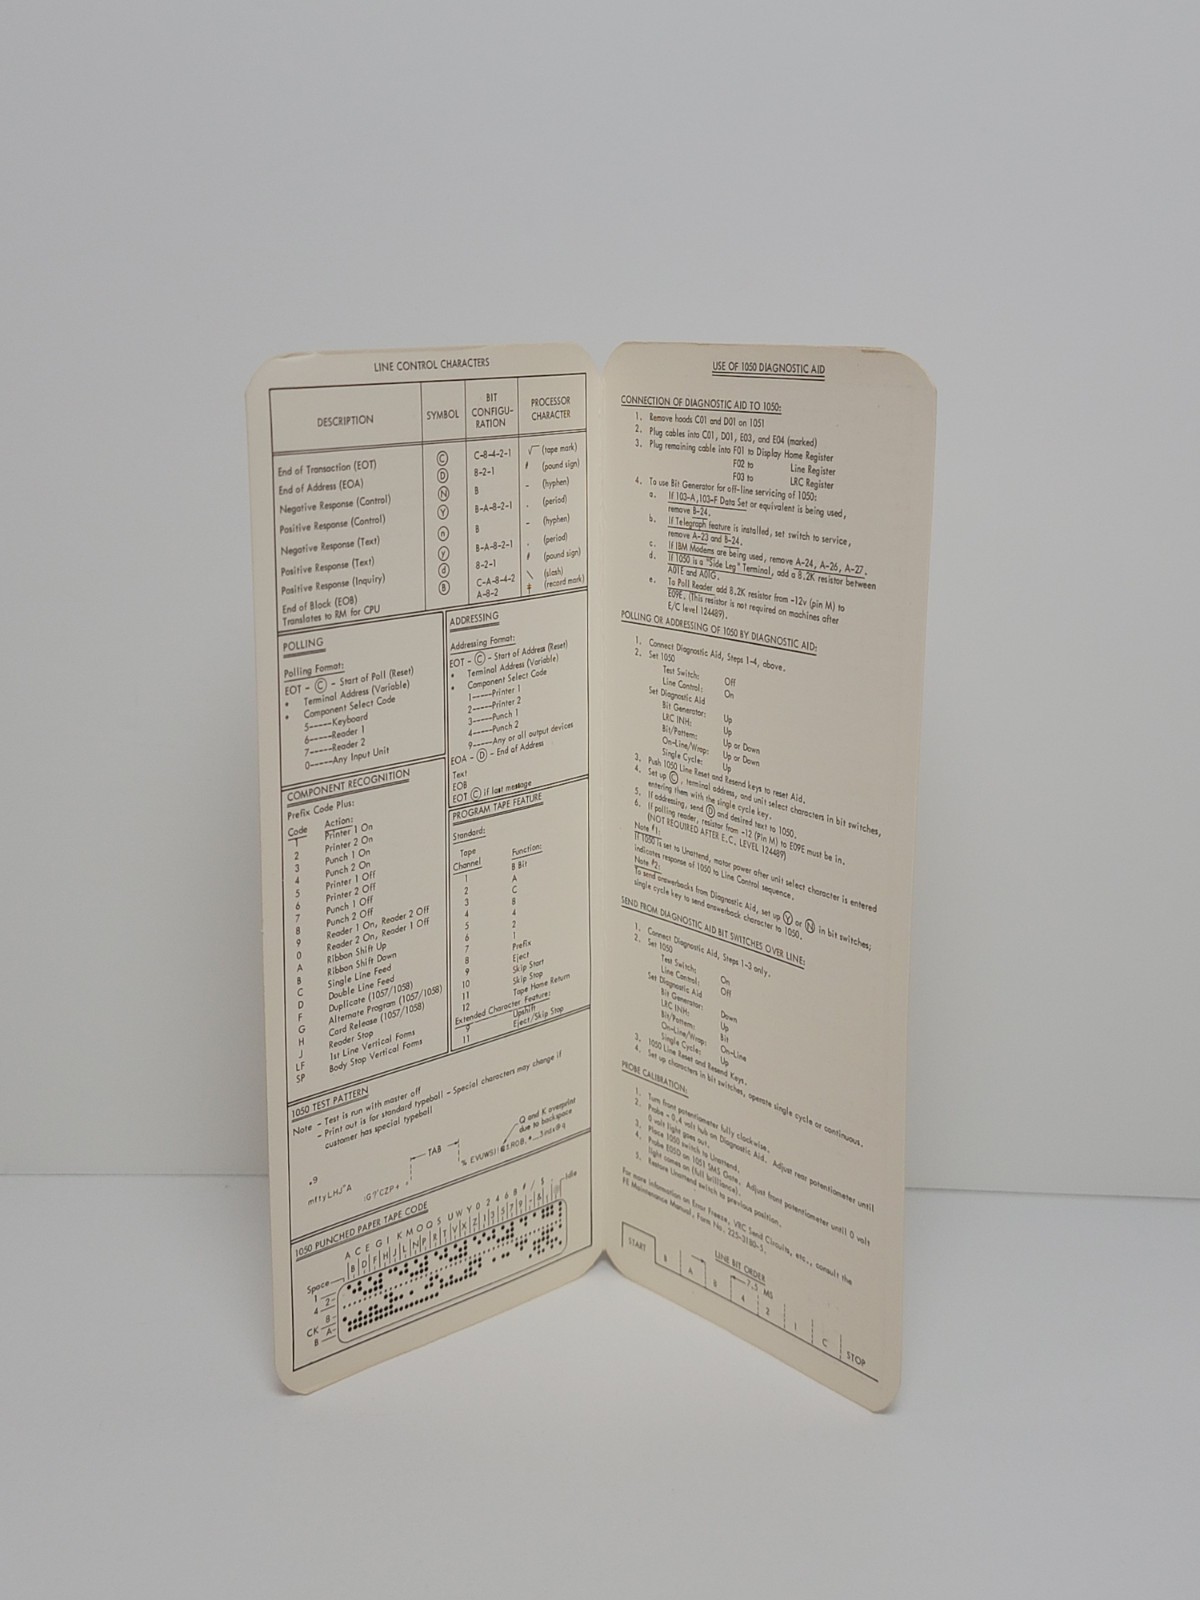 LINE CONTROL CHARACTERS
DESCRIPTION SYMBOL BIT CONFIGU- RATION PROCESSOR CHARACTER
End of Transaction (EOT) Ⓒ C-8-4-2-1 √ (tape mark)
End of Address (EOA) Ⓓ 8-2-1 (pound sign)
Negative Response (Control) Ⓝ B - (hyphen)
Positive Response (Control) Ⓨ B-A-8-2-1 . (period)
Negative Response (Text) ⓝ B - (hyphen)
Positive Response (Text) ⓨ B-A-8-2-1 . (period)
Positive Response (Inquiry) ⓓ 8-2-1 (pound sign)
End of Block (EOB) Ⓑ C-A-8-4-2 \ (slash)
Translates to RM for CPU A-8-2 ‡ (record mark)
POLLING
Polling Format:
EOT - Ⓒ - Start of Poll (Reset)
• Terminal Address (Variable)
• Component Select Code
5-----Keyboard
6-----Reader 1
7-----Reader 2
0-----Any Input Unit
ADDRESSING
Addressing Format:
EOT - Ⓒ - Start of Address (Reset)
• Terminal Address (Variable)
• Component Select Code
1-----Printer 1
2-----Printer 2
3-----Punch 1
4-----Punch 2
9-----Any or all output devices
EOA - Ⓓ - End of Address
Text
EOB
EOT Ⓒ if last message
COMPONENT RECOGNITION
Prefix Code Plus:
Code Action:
1 Printer 1 On
2 Printer 2 On
3 Punch 1 On
4 Punch 2 On
5 Printer 1 Off
6 Printer 2 Off
7 Punch 1 Off
8 Punch 2 Off
9 Reader 1 On, Reader 2 Off
0 Reader 2 On, Reader 1 Off
A Ribbon Shift Up
B Ribbon Shift Down
C Single Line Feed
D Double Line Feed
F Duplicate (1057/1058)
G Alternate Program (1057/1058)
H Card Release (1057/1058)
J Reader Stop
LF 1st Line Vertical Forms
SP Body Stop Vertical Forms
PROGRAM TAPE FEATURE
Standard:
Tape
Channel Function:
1 B Bit
2 A
3 C
4 8
5 4
6 2
7 1
8 Prefix
9 Eject
10 Skip Start
11 Skip Stop
12 Tape Home Return
Extended Character Feature:
9 Upshift
11 Eject/Skip Stop
1050 TEST PATTERN
Note - Test is run with master off
- Print out is for standard typeball - Special characters may change if
customer has special typeball
Q and K overprint
due to backspace
TAB
.9
1050 PUNCHED PAPER TAPE CODE
A C E G I K M O Q S U W Y 0 2 4 6 8 # / $ . Idle
B D F H J L N P R T V X Z 1 3 5 7 9 - &
Space
1
2
4
8
CK
A
B
USE OF 1050 DIAGNOSTIC AID
CONNECTION OF DIAGNOSTIC AID TO 1050:
1. Remove hoods C01 and D01 on 1051
2. Plug cables into C01, D01, E03, and E04 (marked)
3. Plug remaining cable into F01 to Display Home Register
F02 to Line Register
F03 to LRC Register
4. To use Bit Generator for off-line servicing of 1050:
a. If 103-A, 103-F Data Set or equivalent is being used,
remove B-24.
b. If Telegraph feature is installed, set switch to service,
remove A-23 and B-24.
c. If IBM Modems are being used, remove A-24, A-26, A-27.
d. If 1050 is a "Side Leg" Terminal, add a 8.2K resistor between
A01E and A01G.
e. To Poll Reader add 8.2K resistor from -12v (pin M) to
E09E. (This resistor is not required on machines after
E/C level 124489).
POLLING OR ADDRESSING OF 1050 BY DIAGNOSTIC AID:
1. Connect Diagnostic Aid, Steps 1-4, above.
2. Set 1050
Test Switch: Off
Line Control: On
Set Diagnostic Aid
Bit Generator: Up
LRC INH: Up
Bit/Pattern: Up or Down
On-Line/Wrap: Up or Down
Single Cycle: Up
3. Push 1050 Line Reset and Resend keys to reset Aid.
4. Set up Ⓒ, terminal address, and unit select characters in bit switches,
entering them with the single cycle key.
5. If addressing, send Ⓓ and desired text to 1050.
6. If polling reader, resistor from -12 (Pin M) to E09E must be in.
(NOT REQUIRED AFTER E.C. LEVEL 124489)
Note #1:
If 1050 is set to Unattend, motor power after unit select character is entered
indicates response of 1050 to Line Control sequence.
Note #2:
To send answerbacks from Diagnostic Aid, set up Ⓨ or Ⓝ in bit switches;
single cycle key to send answerback character to 1050.
SEND FROM DIAGNOSTIC AID BIT SWITCHES OVER LINE:
1. Connect Diagnostic Aid, Steps 1-3 only.
2. Set 1050
Test Switch: On
Line Control: Off
Set Diagnostic Aid
Bit Generator: Down
LRC INH: Up
Bit/Pattern: Bit
On-Line/Wrap: On-Line
Single Cycle: Up
3. 1050 Line Reset and Resend Keys.
4. Set up characters in bit switches, operate single cycle or continuous.
PROBE CALIBRATION:
1. Turn front potentiometer fully clockwise.
2. Probe - 0.4 volt hub on Diagnostic Aid. Adjust rear potentiometer until
0 volt light goes out.
3. Place 1050 switch to Unattend.
4. Probe E050 on 1051 SMS Gate. Adjust front potentiometer until 0 volt
light comes on (full brilliance).
5. Restore Unattend switch to previous position.
For more information on Error Freeze, VRC Send Circuits, etc., consult the
FE Maintenance Manual, Form No. 225-3180-5.
LINE BIT ORDER
7.5 MS
START B A 8 4 2 1 C STOP